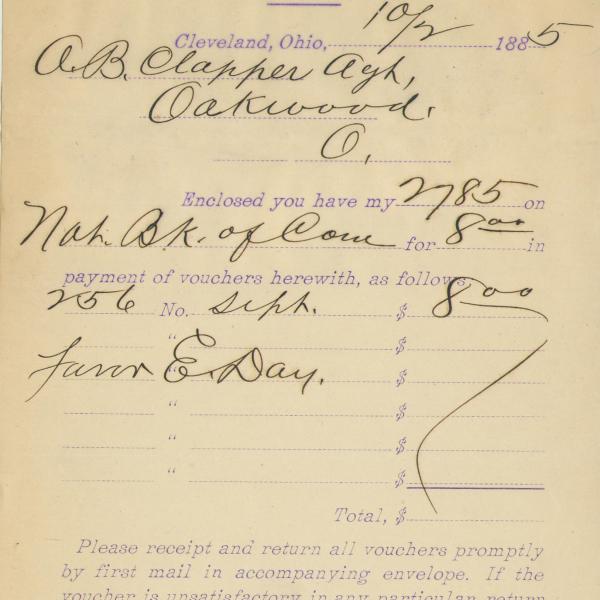 Cleveland, Ohio, 10/2 1885
A. B. Clapper Agt,
Oakwood.
O.
Enclosed you have my 2785 on
Nat. Bk. of Com for 8 00 in
payment of vouchers herewith, as follows
256 No. Sept. $ 8 00
" $
favor E. Day. $
" $
" $
" $
Total, $
Please receipt and return all vouchers promptly
by first mail in accompanying envelope. If the
voucher is unsatisfactory in any particular return